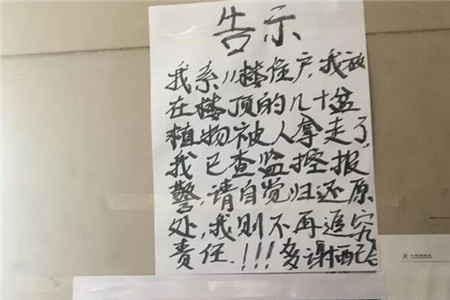 告示
我系11楼住户,我放
在楼顶的几十盆
植物被人拿走了
我已查监控报
警,请自觉归还原
处,我则不再追究
责任.!!!多谢配合